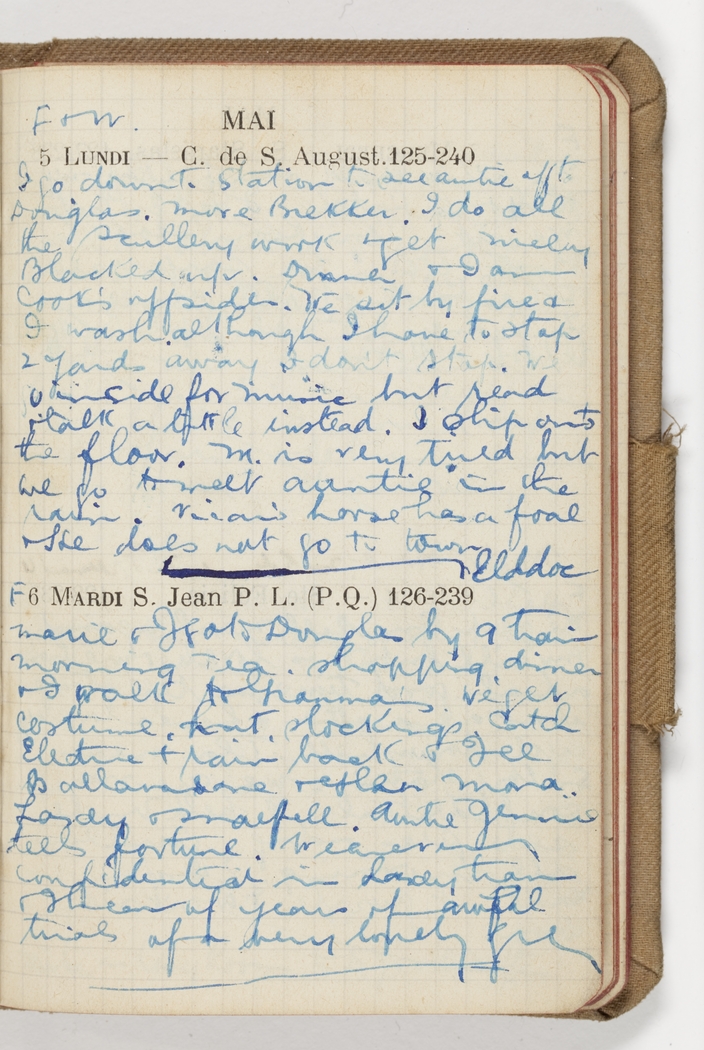 F & W.
MAI
5 LUNDI — C. de S. August. 125-240
I go down t. Station to see auntie off to
Douglas. more Brekker. I do all
the scullery work & get nicely
Blacked up. Dinner & I am
Cook's offsider. We sit by fire &
I wash although I have to stop
2 yards away & don't stop. We
go inside for music but read
& talk a little instead. I slip onto
the floor. M. is very tired but
we go to meet auntie in the
rain. Vicar's horse has a foal
& she does not go to town
F 6 MARDI S. Jean P. L. (P.Q.) 126-239
marie & I go to Douglas by 9 train
morning Tea. shopping, dinner
& I walk to Granma's. We get
costume, hat, stockings. Catch
Electric train back & I see
Ballavarane
Laxey & Snaefell. Auntie Jennie
tells fortune. We are very
confidential in Laxey tram
& I hear of years of awful
trials of a very lonely girl